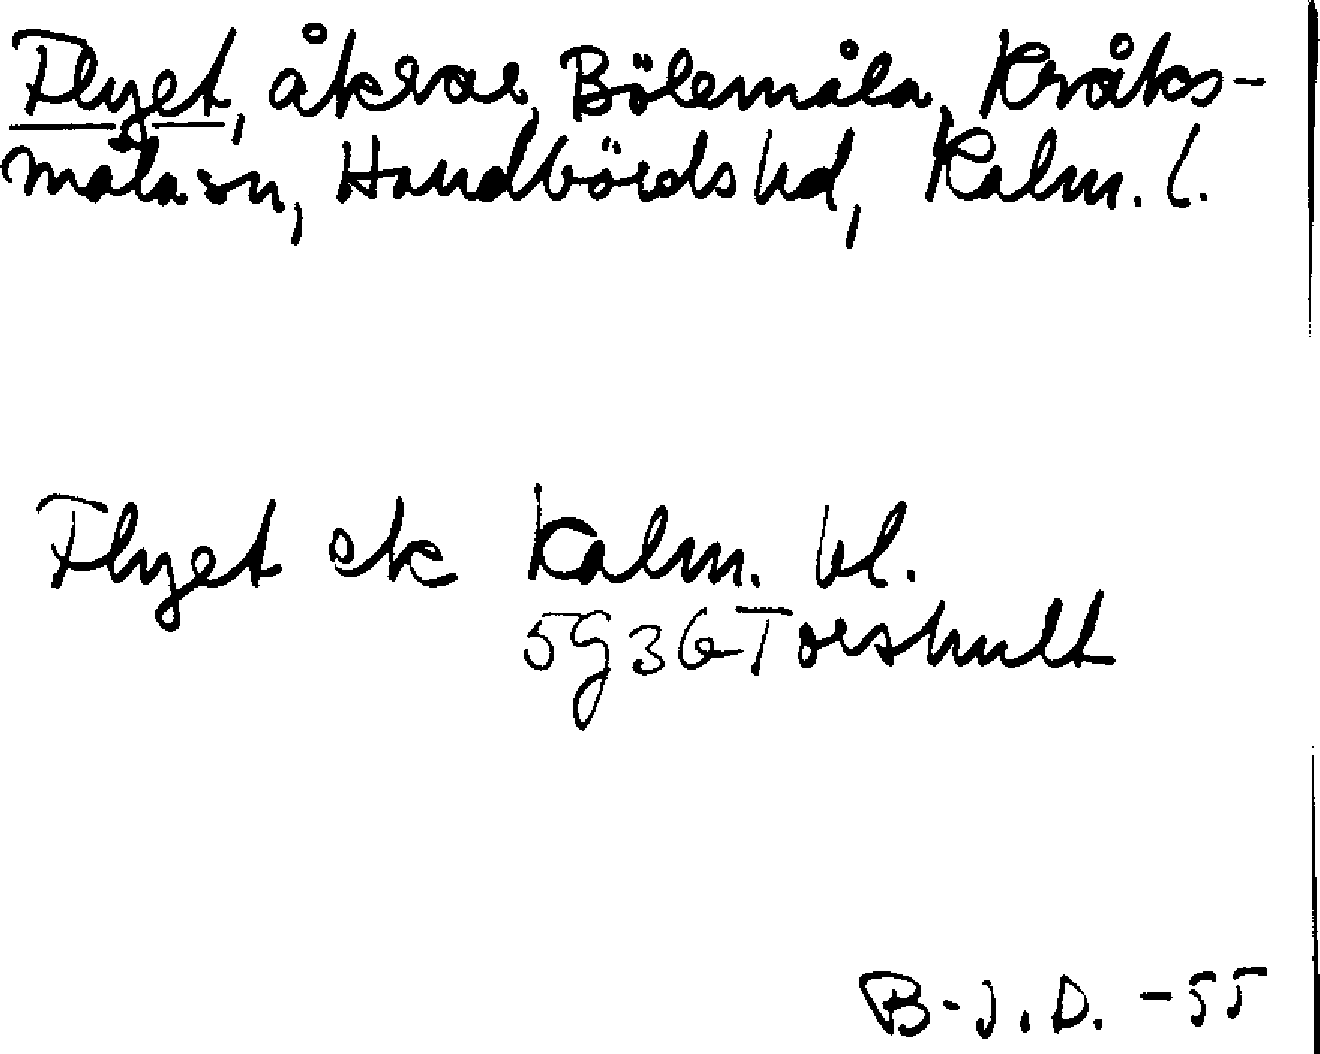 Flyet, åkrar, Bölemåla, Kråks-
måla sn, Handbörds hd, Kalm. l.
Flyet ek Kalm. bl.
5g36 Torshult
B-J.D. -55